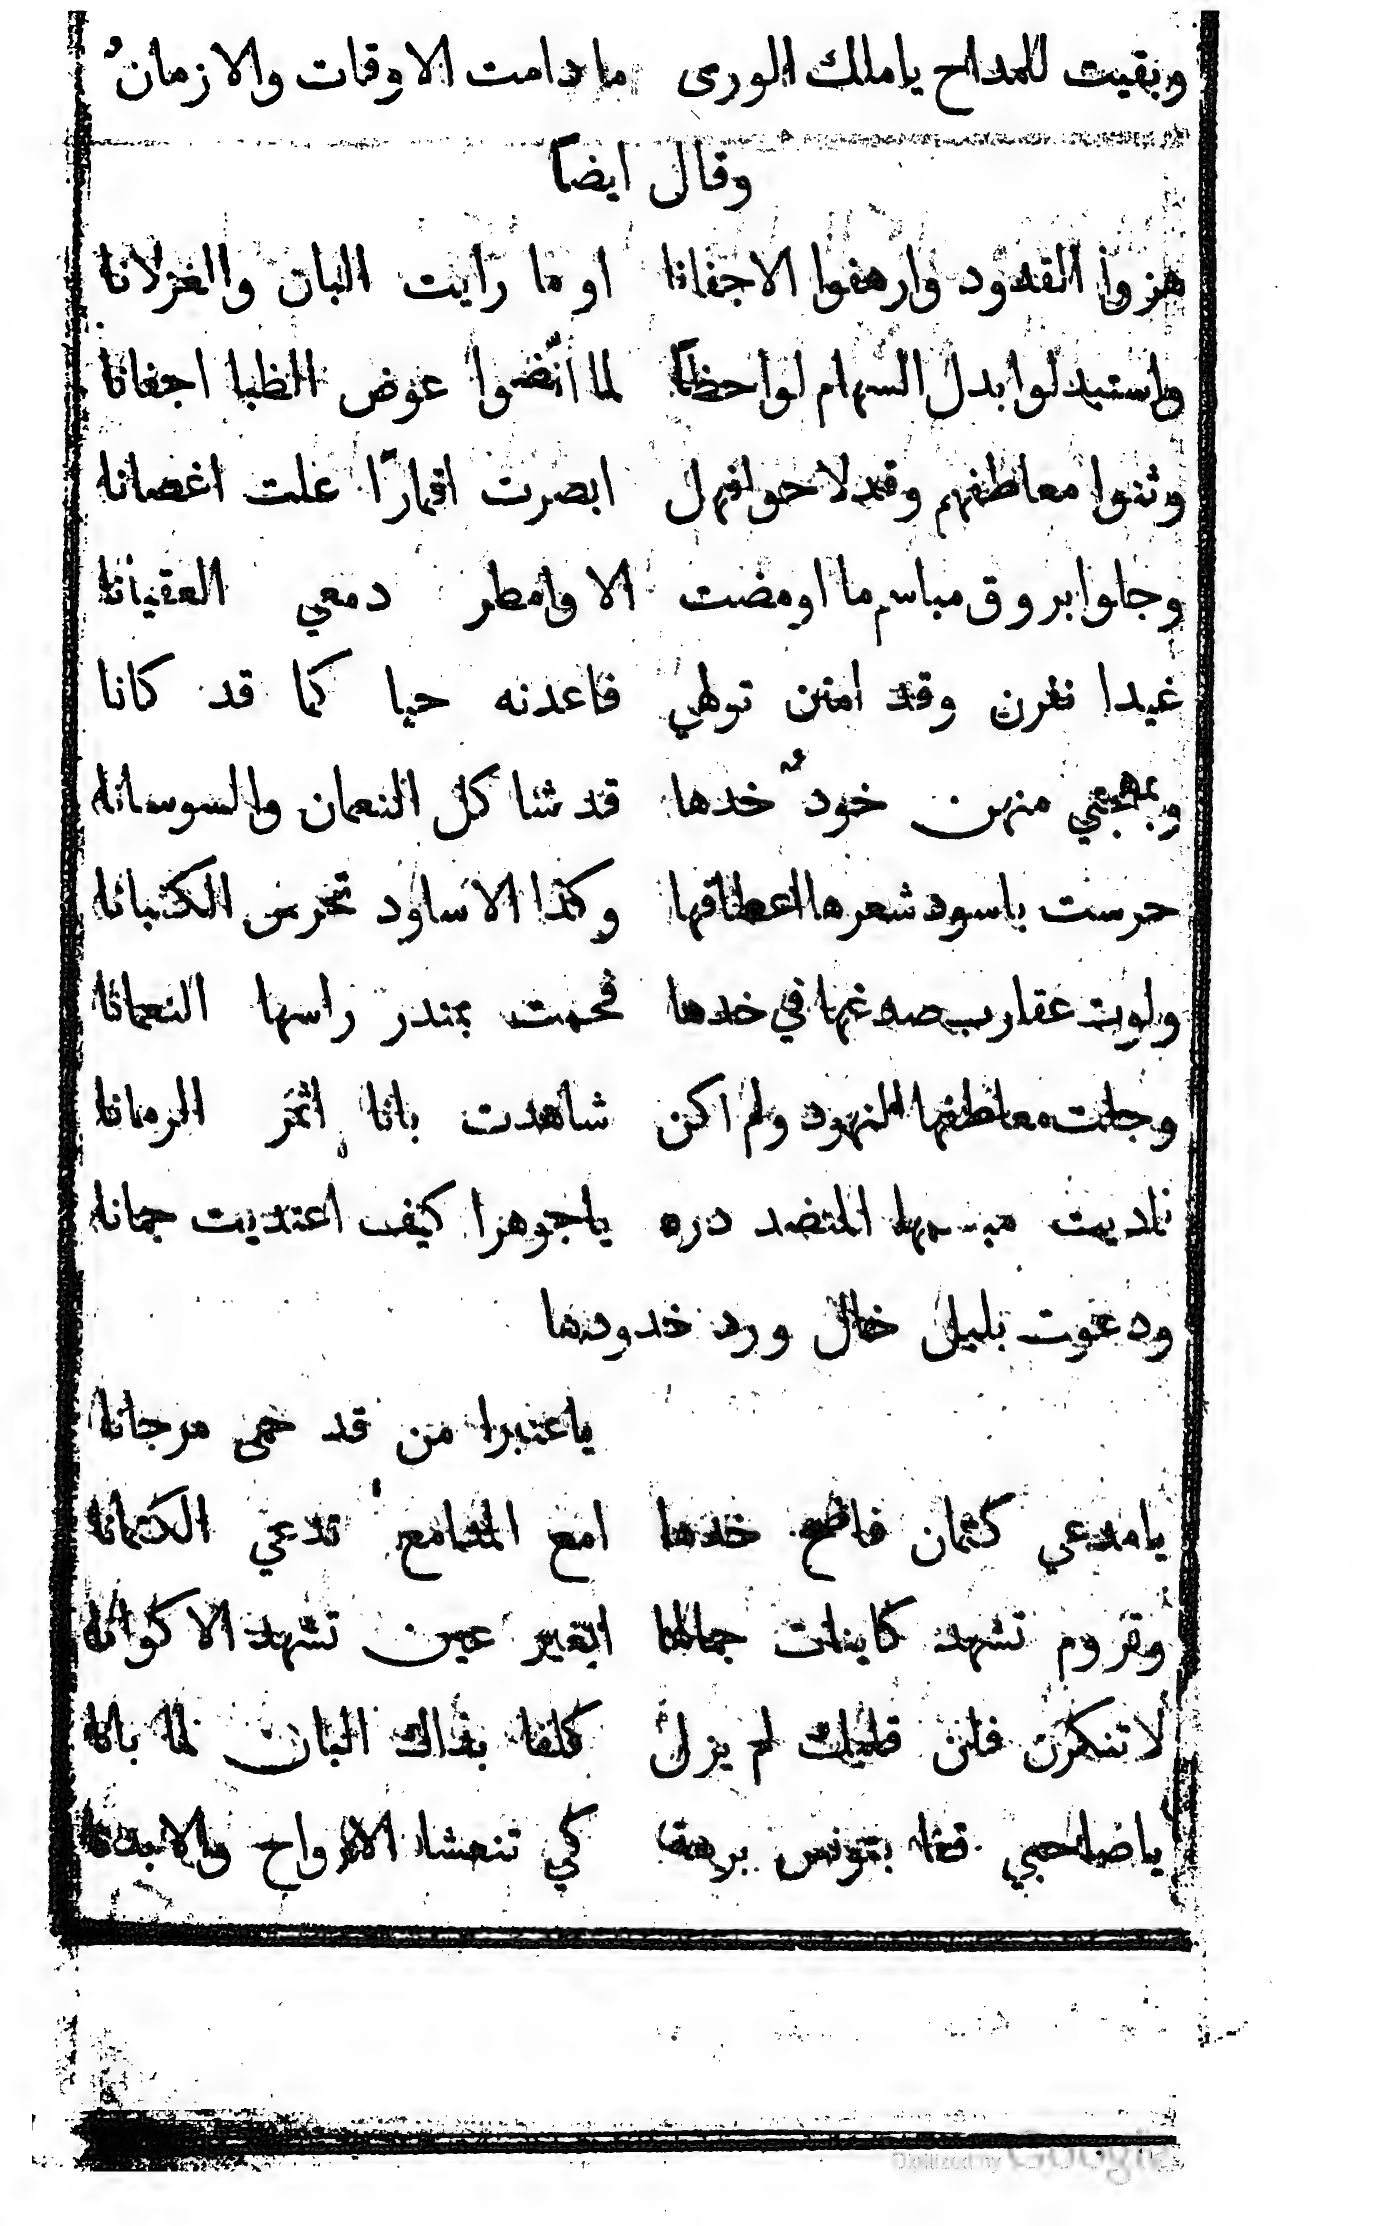 وبقيت للمداح ياملك الورى ما دامت الاوقات والازمانُ
وقال ايضاً
هزوا القدود وارهفوا الاجفانا او ما رايت البان والغزلانا
واستبدلوا بدل السهام لواحظاً لما انّضوا عوض الظبا اجفانا
وثنوا معاطفهم وقد لاحوا فهل ابصرت اقمارًا علت اغصانا
وجلوا بروق مباسم ما اومضت الا وامطر دمعي العقيانا
غيدا نفرن وقد امنن تولهي فاعدنه حيا كما قد كانا
وبمهجتي منهن خودٌ خدها قد شاكل النعمان والسوسانا
حرست باسود شعرها اعطافها وكذا الاساود تحرس الكثبانا
ولوت عقارب صدغها في خدها فحمت بمندر راسها النعمانا
وجلت معاطفها النهود ولم اكن شاهدت بانا اثمر الرمانا
ناديت مبسمها المنضد دره ياجوهرا كيف اعتديت جمانا
ودعوت بلبل خال ورد خدودها
ياعنبرا من قد حمى مرجانا
يامدعي كتمان خدها امع المدامع تدعي الكتمانا
وتروم تشهد كاينات جمالها ابغير عين تشهد الاكوانا
لاتنكرن فلن قليك لم يزل كلفا بذاك البان لما بانا
ياصاحبي قفا بتونس برهة كي تنعشا الارواح والابدانا
Digitized by Google